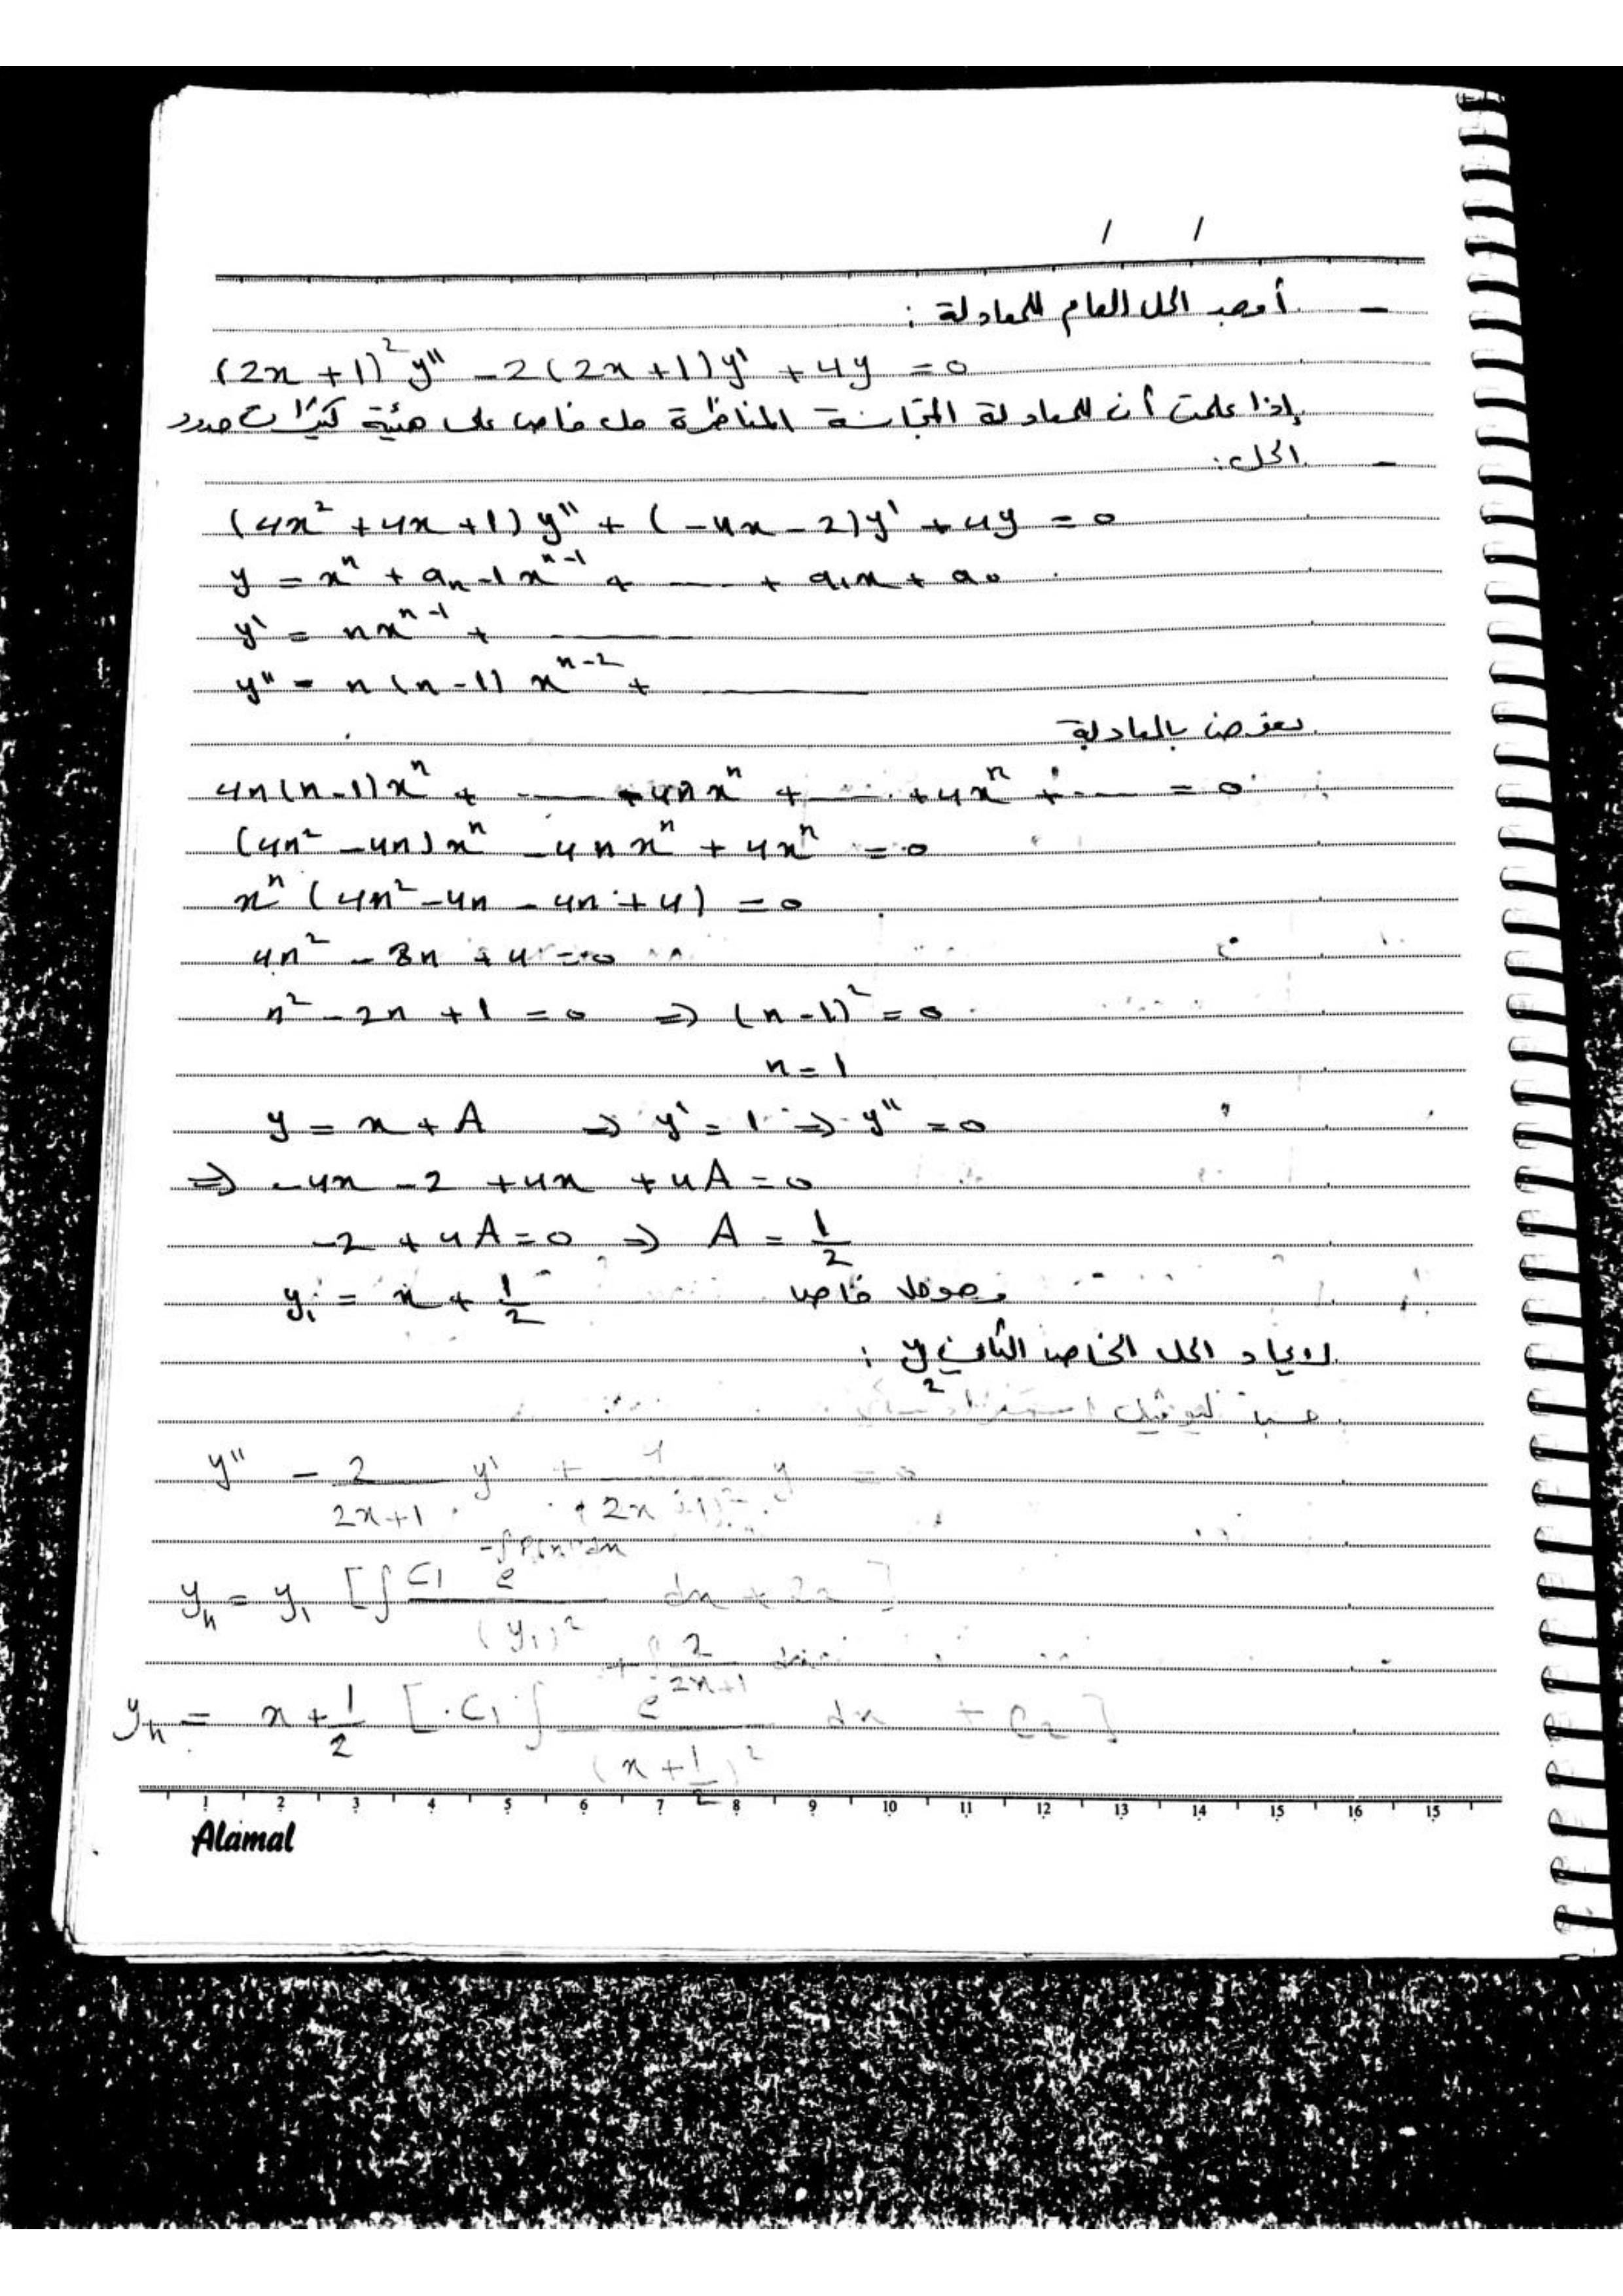 / /
- أوجد الحل العام للمعادلة :
(2x + 1)² y'' - 2(2x + 1) y' + 4y = 0
إذا علمت أن للمعادلة المتجانسة المناظرة حل خاص على هيئة كثيرات حدود
- الحل :
(4x² + 4x + 1) y'' + (-4x - 2) y' + 4y = 0
y = xⁿ + aₙ₋₁xⁿ⁻¹ + ---- + a₁x + a₀
y' = nxⁿ⁻¹ + ----
y'' = n(n-1) xⁿ⁻² + ----
نعوض بالمعادلة
4n(n-1)xⁿ + ---- - 4nxⁿ + ---- + 4xⁿ + ---- = 0
(4n² - 4n)xⁿ - 4nxⁿ + 4xⁿ = 0
xⁿ (4n² - 4n - 4n + 4) = 0
4n² - 8n + 4 = 0
n² - 2n + 1 = 0 ⇒ (n-1)² = 0
n = 1
y = x + A ⇒ y' = 1 ⇒ y'' = 0
⇒ -4x - 2 + 4x + 4A = 0
-2 + 4A = 0 ⇒ A = 1/2
y₁ = x + 1/2 وهو حل خاص
لإيجاد الحل الخاص الثاني y₂ :
حسب ليوفيل
y'' - 2/(2x+1) y' + 4/(2x+1)² y = 0
yₕ = y₁ [∫ C₁ e^(-∫P(x)dx) / (y₁)² dx + C₂]
yₕ = x + 1/2 [C₁ ∫ e^(+∫ 2/(2x+1) dx) / (x + 1/2)² dx + C₂]
1 2 3 4 5 6 7 8 9 10 11 12 13 14 15 16 15
Alamal